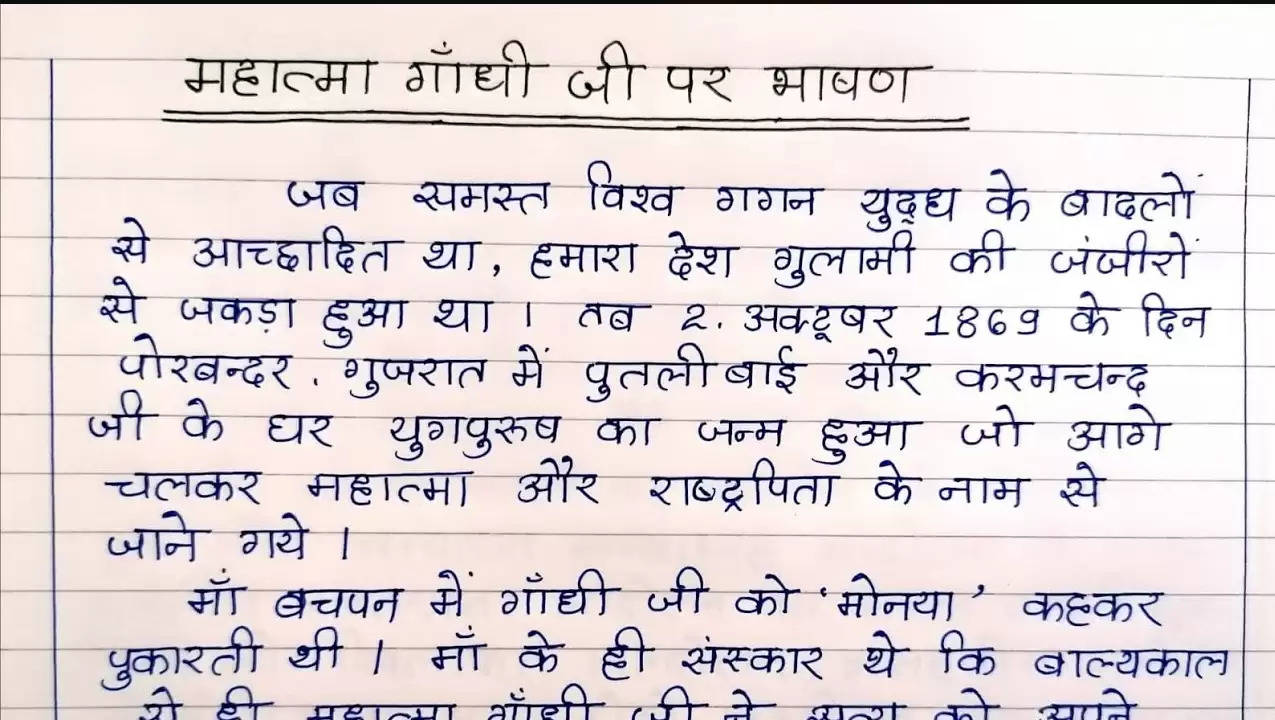 महात्मा गाँधी जी पर भाषण
जब समस्त विश्व गगन युद्ध के बादलों
से आच्छादित था, हमारा देश गुलामी की जंजीरों
से जकड़ा हुआ था । तब 2. अक्टूबर 1869 के दिन
पोरबन्दर, गुजरात में पुतलीबाई और करमचन्द
जी के घर युगपुरुष का जन्म हुआ जो आगे
चलकर महात्मा और राष्ट्रपिता के नाम से
जाने गये ।
माँ बचपन में गाँधी जी को 'मोनया' कहकर
पुकारती थी । माँ के ही संस्कार थे कि बाल्यकाल
से ही महात्मा गाँधी जी ने सत्य को अपने